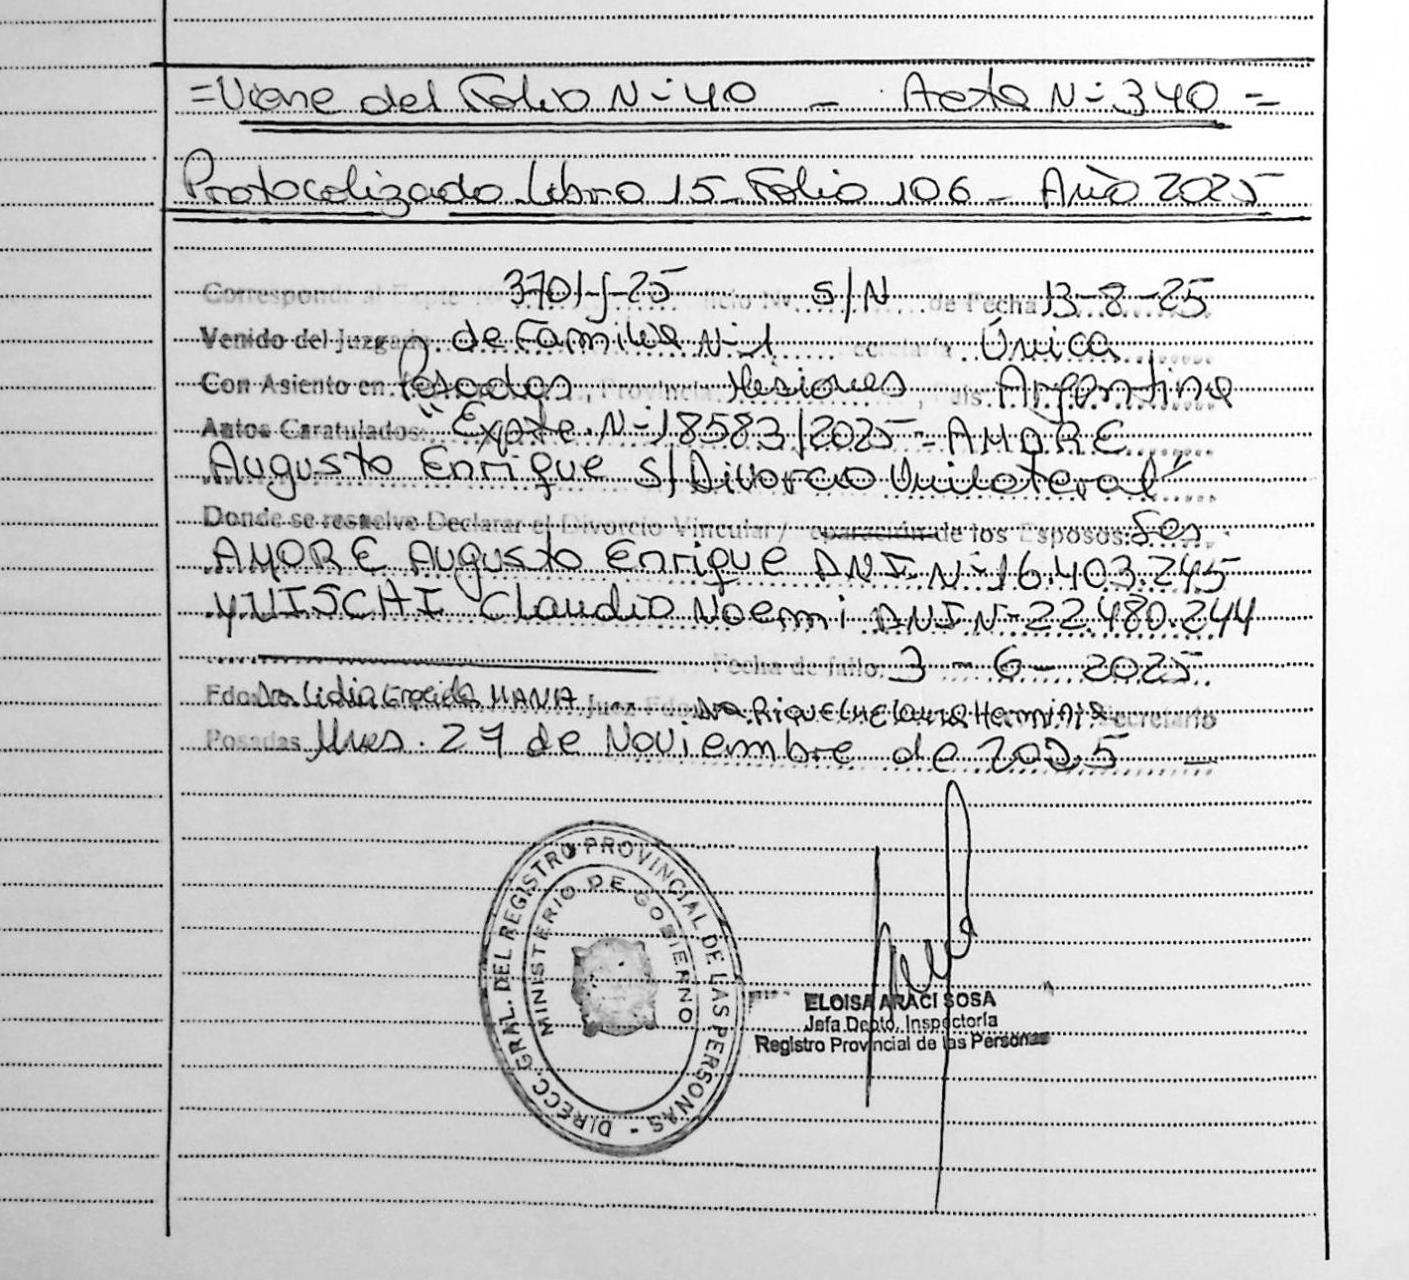 =Viene del Folio N-40 - Acta N-340=
Protocolizado Libro 15-Folio 106- Año 2025
Corresponde al Expte. Nº 3701-J-25 Oficio Nº S/N de Fecha 13-8-25
Venido del Juzgado de Familia N-1 Secretaría Única
Con Asiento en Posadas, Provincia Misiones, País Argentina
Autos Caratulados: "Expte. N-18583/2025-AMORE
Augusto Enrique S/Divorcio Unilateral"
Donde se resuelve Declarar el Divorcio Vincular/ Separación de los Esposos: Sres
AMORE Augusto Enrique DNI N-16.403.245
y VISCHI Claudia Noemi DNI N-22.480.244
Fecha de fallo: 3-6-2025
Fdo. Dra Lidia HANA Juez Fdo. Dra. Secretario
Posadas Mnes. 27 de Noviembre de 2025 —
DIRECC. GRAL. DEL REGISTRO PROVINCIAL DE LAS PERSONAS -
MINISTERIO DE GOBIERNO
ELOISA ARACI SOSA
Jefa Depto. Inspectoría
Registro Provincial de las Personas